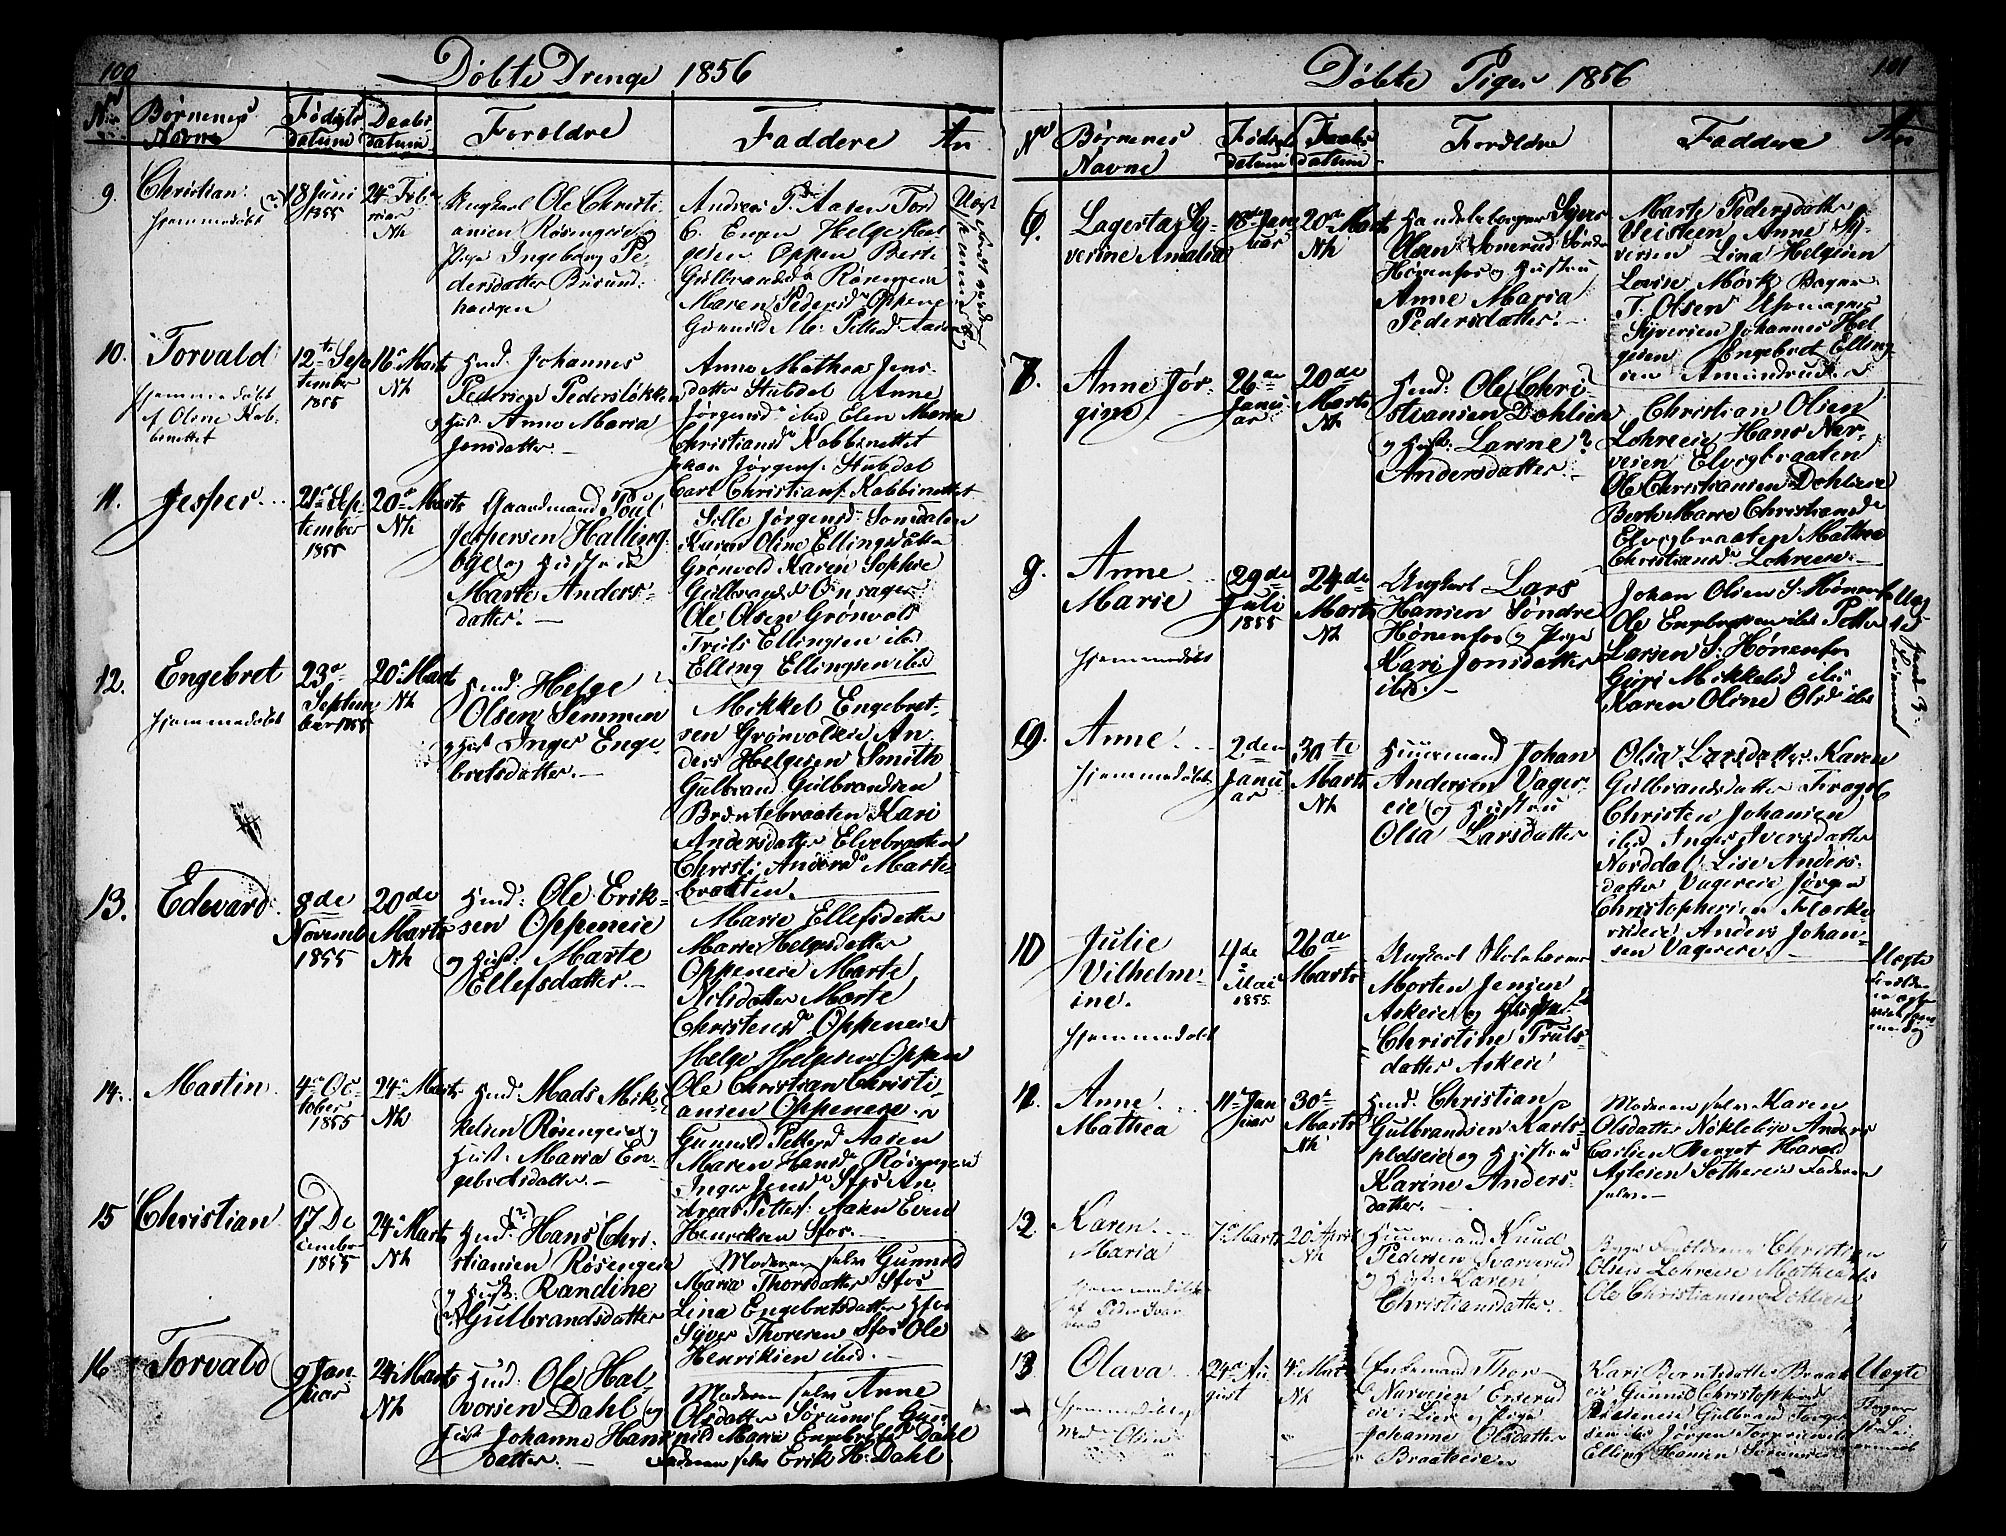 100
Döbte Drenge 1856
No
Börnenes Navne
Födsels datum
Daabs datum
Foreldre
Faddere
An
9.
Christian
hjemmedöbt
18 Juni
1855
24de Feb
ruar
Nk
Ungkarl Ole Christi-
anien Røsengeie og
Pige Ingeborg Pe-
dersdatter Busund-
haugen
Oppen Berte
Gulbrandsd Røsengeie
Maren Pedersd Oppene
Gunnild M. Pettersd Aasen
10.
Torvald
hjemmedöbt
af Oline Kab-
benettet
12te Sep
tember
1855
16de Marts
Nk
Husd. Johannes
Pedersen Pedersløkken
og Hust. Anne Maria
Jensdatter
Anne Mathea Jens-
datter Stubdal Anne
Jørgensd ibid Elen Maria
Christiansd Kabbinettet
Johan Jørgens. Stubdal
Carl Christians. Kabbinettet
11.
Jesper
21de Sep-
tember
1855
20de Marts
Nk
Gaardmand Poul
Jespersen Halling-
bye og Hustru
Marte Anders-
datter
Sille Jørgensd. Somdalen
Karen Oline Ellingsdatter
Grönvold Karen Sophie
Gulbrandsd Onsager
Ole Olsen Grönvold
Truls Ellingsen ibid
Elling Ellingsen ibid
12.
Engebret
hjemmedöbt
23de
Septem
ber 1855
20de Marts
Nk
Husd. Helge
Olsen Semmen
og Hust Inger Enge-
bretsdatter
Mikkel Engebret-
sen Grönvoldeie An-
ders Helgesen Smith
Gulbrand Gulbrandsen
Bræntebraaten Kari
Andersdatter Elvebraaten
Christi. Andersd Marte-
braaten.
13.
Edevard
8de
Novemb
1855
20de
Marts
Nk
Husd: Ole Erik-
sen Oppeneie
og Hust: Marte
Ellefsdatter
Marie Ellefsdatter
Marie Helgesdatter
Oppeneie Marte
Nilsdatter Marte
Christensd Oppeneie
Helge Helgesen Oppen
Ole Christian Christi-
anien Oppeneie
14.
Martin
4de Oc
tober
1855
24de Marts
Nk
Husd: Mads Mik-
kelsen Røsengeie og
Hust. Maria En-
gebretsdatter
Gunnild Pettersd Aasen
Maren Hansd Røsengeie
Inger Jensd Hfos An-
dreas Petters. Aasen Even
Henriksen Hfos.
15
Christian
17 De
cember
1855
24de Marts
Nk
Husd. Hans Chri-
stianien Røsengeie
og Hust: Randine
Gulbrandsdatter
Moderen selv Gunnild
Maria Thorsdatter Hfos
Lina Engebretsdatter Hfos
Syver Thoresen Hfos Ole
Henriksen ibid.
16
Torvald
9 Jan-
uar
24de Marts
Nk
Husd: Ole Hal-
vorsen Dahl og
Hust Johanne Hans-
datter
Moderen selv Anne
Olsdatter Sørum Gun-
nild Marie Engebretsd Dahl
Faderen selv Erik H. Dahl
101
Döbte Piger 1856
No
Börnenes Navne
Födsels datum
Daabs datum
Foreldre
Faddere
An
6.
Lagerta Sy-
verine Amalia
18de Janu
uar
20de Marts
Nk
Handelsborger Syver
Olsen Söndre
Hønenfos og Hustru
Anne Maria
Pedersdatter
Marte Pedersdatter
Veisteen Anne Sy-
versen Lina Helgesen
Lovise Mörk Bager
T. Olsen Uhrmager
Syversen Johannes Hel-
gesen Engebret Elling-
sen Amundrud
7.
Anne Jør-
gine
26de
Janu
ar
20de
Marts
Nk
Husd: Ole Chri
stianien Dohlien
og Hust: Larine?
Andersdatter
Christian Olsen
Lohreeie Hans Nar-
vesen Elvigbraaten
Ole Christiansen Dohlien
Berte Marie Christiansd
Elvigbraaten Mathea
Christiansd Lohreeie
8.
Anne
Marie
hjemmedöbt
29de
Juli
1855
24de
Marts
Nk
Ungkarl Lars
Hansen Søndre
Hønenfos og Pige
Kari Jonsdatter
ibid.
Johan Olsen S. Hønenfos
Ole Engebretsen ibid Petter
Larsen S. Hønenfos
Guri Mikkelsd ibid
Karen Oline Olsd ibid
9.
Anne
hjemmedöbt
2den
Janu
ar
30te
Marts
Nk
Huusmand Johan
Andersen Vager-
eie og Hustru
Olia Larsdatter
Olia Larsdatter Karen
Gulbrandsdatter
Christen Johansen
ibid Inger Iversdatter
Norddal Lise Anders-
datter Vagereie Jørgen
Christophersen
Anders Johan-
sen Vagereie
10
Julie
Vilhelm-
ine.
hjemmedöbt
4de
Mai
1855
26de
Marts
Ungkarl Skolelærer
Morten Jensen
Askeie og
Christine Truls-
datter Askeie
Uægte
11.
Anne
Mathea
11te Jan
uar
30te
Marts
Nk
Husd. Christian
Gulbrandsen Karls-
pladseie og Hustru
Karine Anders-
datter.
Moderen selv Karen
Olsdatter Nökleby Anders
Carlsen Berget Harald
Aslesen Setherie Faderen
selv.
12
Karen
Maria
hjemmedöbt
af Peder Svar-
verud
7de Marts
20de April
Nk
Huusmand Knud
Pedersen Svarverud
og Hust. Karen
Christiansdatter
Begge Forældrene Christian
Olsen Lohreeie Mathea
Ole Christiansen Dohlien
13
Olava
hjemmedöbt
24de Au
gust
4de Mai
Nk
Enkemand Thor
Narvesen Enserud
eie i Lier og Pige
Johanne Olsdatter
Braateeie
Kari Berntsdatter Braate
eie Gunnild Christophersd
Gulbrand
Jørgen
Elling Hansen
Uægte